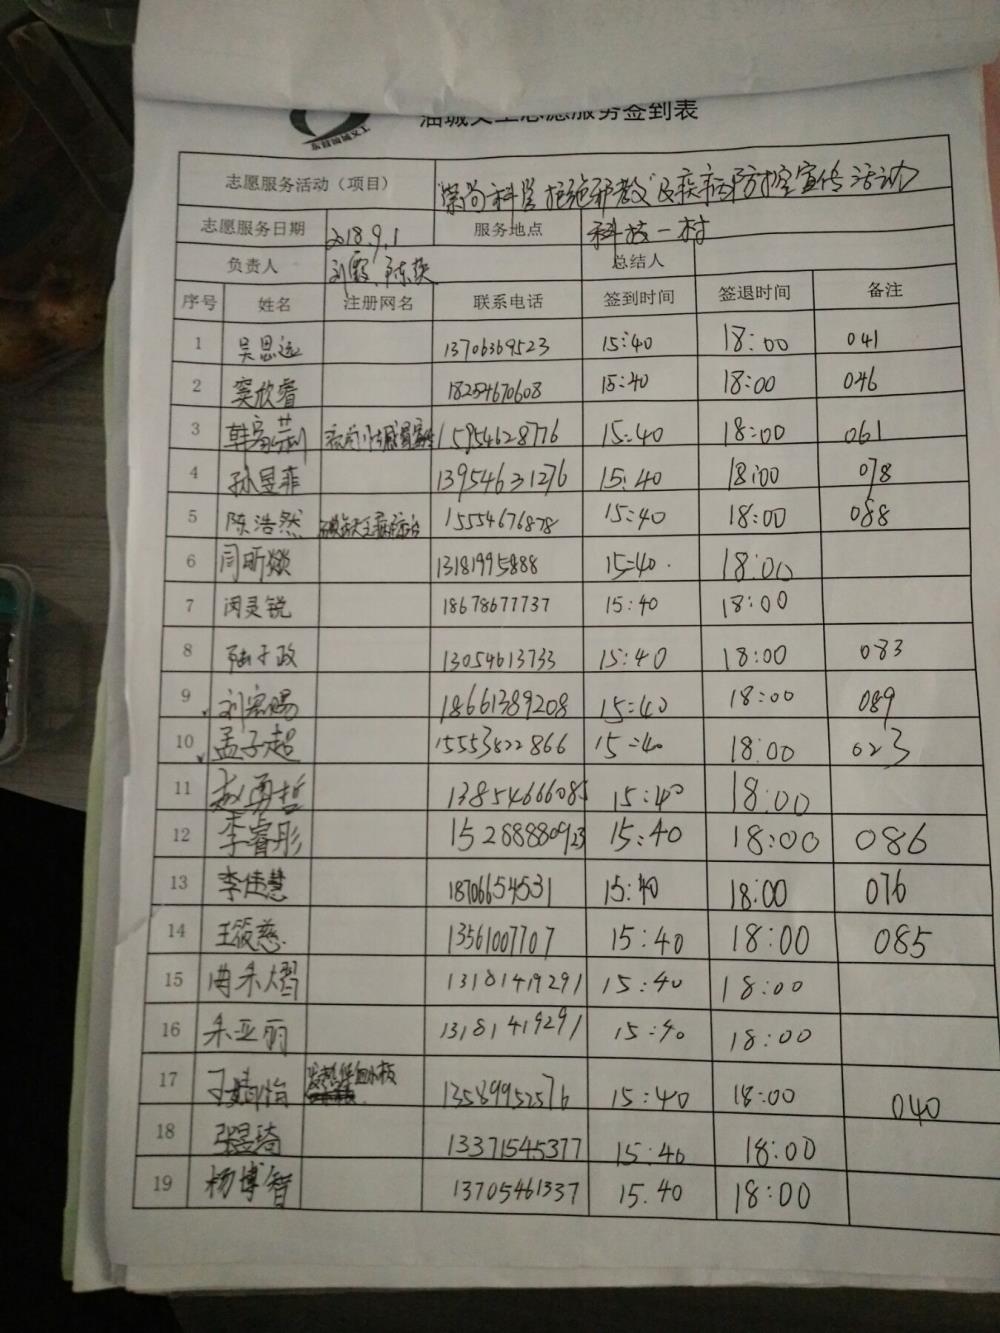 油城义工志愿服务签到表
东营油城义工
志愿服务活动（项目） "崇尚科学 拒绝邪教"及疾病防控宣传活动
志愿服务日期 2018.9.1 服务地点 科技一村
负责人 刘霞、陈英 总结人
序号 姓名 注册网名 联系电话 签到时间 签退时间 备注
1 吴思远 13706369523 15:40 18:00 041
2 窦欣睿 18254670608 15:40 18:00 046
3 15954628776 15:40 18:00 061
4 孙昱菲 13954631276 15:40 18:00 078
5 陈浩然 15554676878 15:40 18:00 088
6 闫昕燚 13181995888 15:40 18:00
7 闵灵锐 18678677737 15:40 18:00
8 陆子政 13054613733 15:40 18:00 083
9 刘宸赐 18661389208 15:40 18:00 089
10 孟子超 15553822866 15:40 18:00 023
11 赵勇哲 13854666085 15:40 18:00
12 李睿彤 15288880923 15:40 18:00 086
13 李佳慧 18706654531 15:40 18:00 076
14 王筱慈 13561007707 15:40 18:00 085
15 曲禾熠 13181419291 15:40 18:00
16 朱亚丽 13181419291 15:40 18:00
17 王婧怡 13589952576 15:40 18:00 040
18 张昱琦 13371545377 15:40 18:00
19 杨博智 13705461337 15.40 18:00